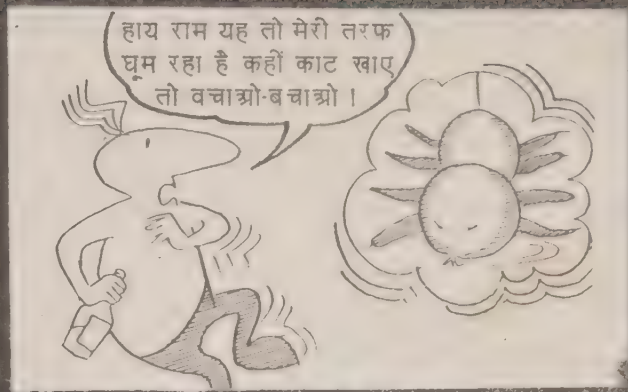 हाय राम यह तो मेरी तरफ
घूम रहा है कहीं काट खाए
तो वचाओ-बचाओ !